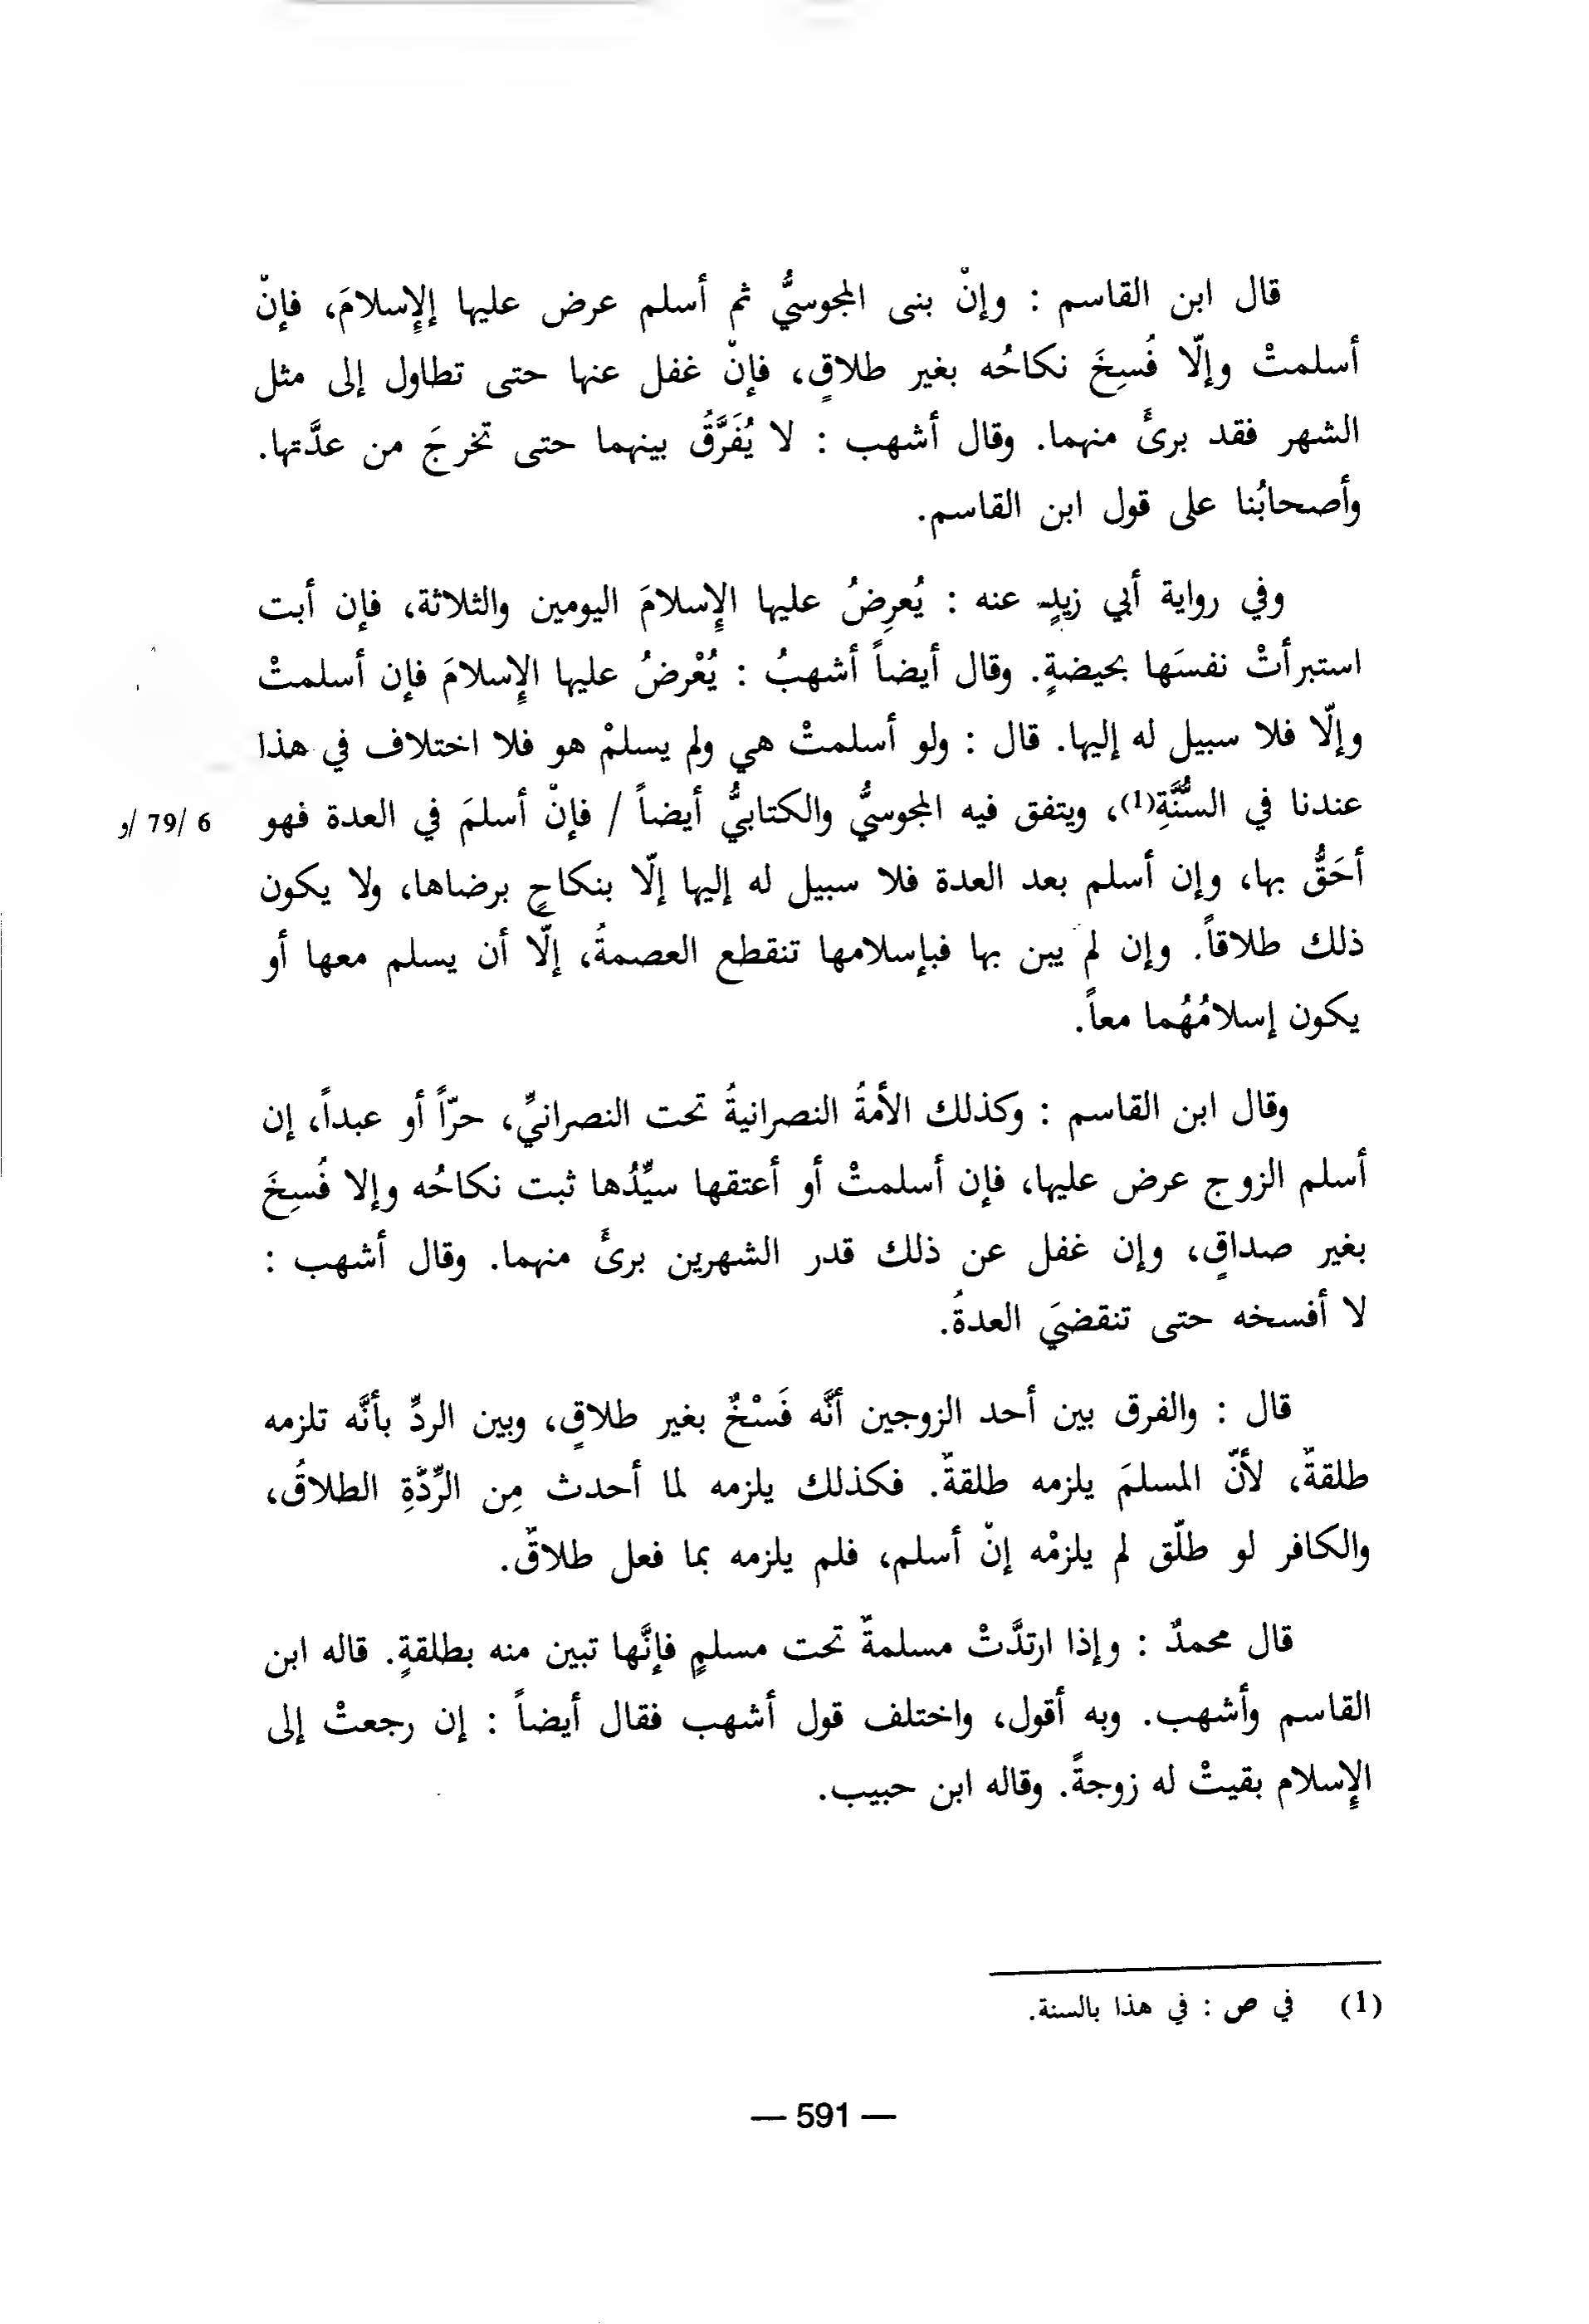 قال ابن القاسم : وإنْ بنى المجوسيُّ ثم أسلم عرض عليها إلإِسلامَ، فإنْ
أسلمتْ وإلّا فُسِخَ نكاحُه بغير طلاقٍ، فإنْ غفل عنها حتى تطاول إلى مثل
الشهر فقد برئَ منهما. وقال أشهب : لا يُفَرَّقُ بينهما حتى تخرجَ من عدَّتها.
وأصحابُنا على قول ابن القاسم.
وفي رواية أبي زيدٍ عنه : يُعرِضُ عليها الإِسلامَ اليومين والثلاثة، فإن أبت
استبرأتْ نفسَها بحيضةٍ. وقال أيضاً أشهبُ : يُعْرضُ عليها الإِسلامَ فإن أسلمتْ
وإلّا فلا سبيل له إليها. قال : ولو أسلمتْ هي ولم يسلمْ هو فلا اختلاف في هذا
عندنا في السُّنَّةِ(1)، ويتفق فيه المجوسيُّ والكتابيُّ أيضاً / فإنْ أسلمَ في العدة فهو
6 /79/ و
أحَقُّ بها، وإن أسلم بعد العدة فلا سبيل له إليها إلّا بنكاحٍ برضاها، ولا يكون
ذلك طلاقاً. وإن لم يبن بها فبإسلامها تنقطع العصمةُ، إلّا أن يسلم معها أو
يكون إسلامُهُما معاً.
وقال ابن القاسم : وكذلك الأمةُ النصرانيةُ تحت النصرانيِّ، حرّاً أو عبداً، إن
أسلم الزوج عرض عليها، فإن أسلمتْ أو أعتقها سيِّدُها ثبت نكاحُه وإلا فُسِخَ
بغير صداقٍ، وإن غفل عن ذلك قدر الشهرين برئَ منهما. وقال أشهب :
لا أفسخه حتى تنقضيَ العدةُ.
قال : والفرق بين أحد الزوجين أنَّه فَسْخٌ بغير طلاقٍ، وبين الردِّ بأنَّه تلزمه
طلقةٌ، لأنّ المسلمَ يلزمه طلقةٌ. فكذلك يلزمه لما أحدث مِن الرِّدَّةِ الطلاقُ،
والكافر لو طلّق لم يلزمْه إنْ أسلم، فلم يلزمه بما فعل طلاقٌ.
قال محمدٌ : وإذا ارتدَّتْ مسلمةٌ تحت مسلمٍ فإنَّها تبين منه بطلقةٍ. قاله ابن
القاسم وأشهب. وبه أقول، واختلف قول أشهب فقال أيضاً : إن رجعتْ إلى
الإِسلام بقيتْ له زوجةً. وقاله ابن حبيب.
(1) في ص : في هذا بالسنة.
— 591 —